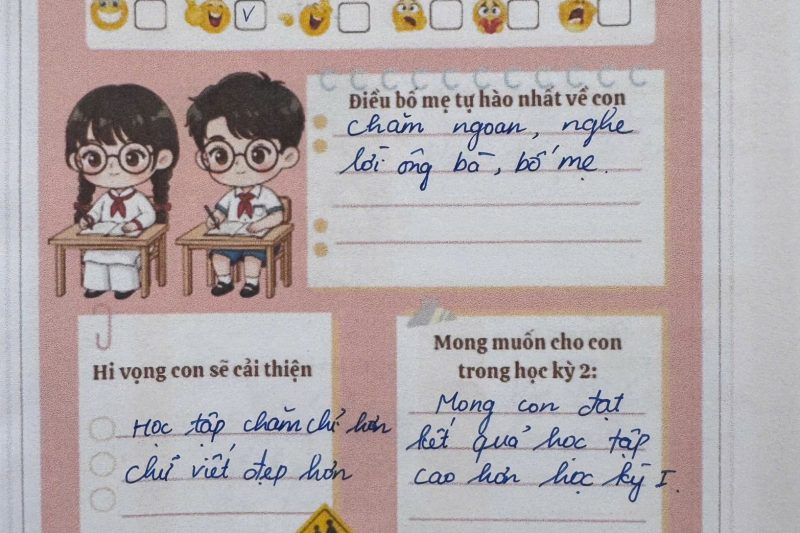 Điều bố mẹ tự hào nhất về con
chăm ngoan, nghe
lời ông bà, bố mẹ.
Hi vọng con sẽ cải thiện
Học tập chăm chỉ hơn
chữ viết đẹp hơn
Mong muốn cho con
trong học kỳ 2:
Mong con đạt
kết quả học tập
cao hơn học kỳ I.